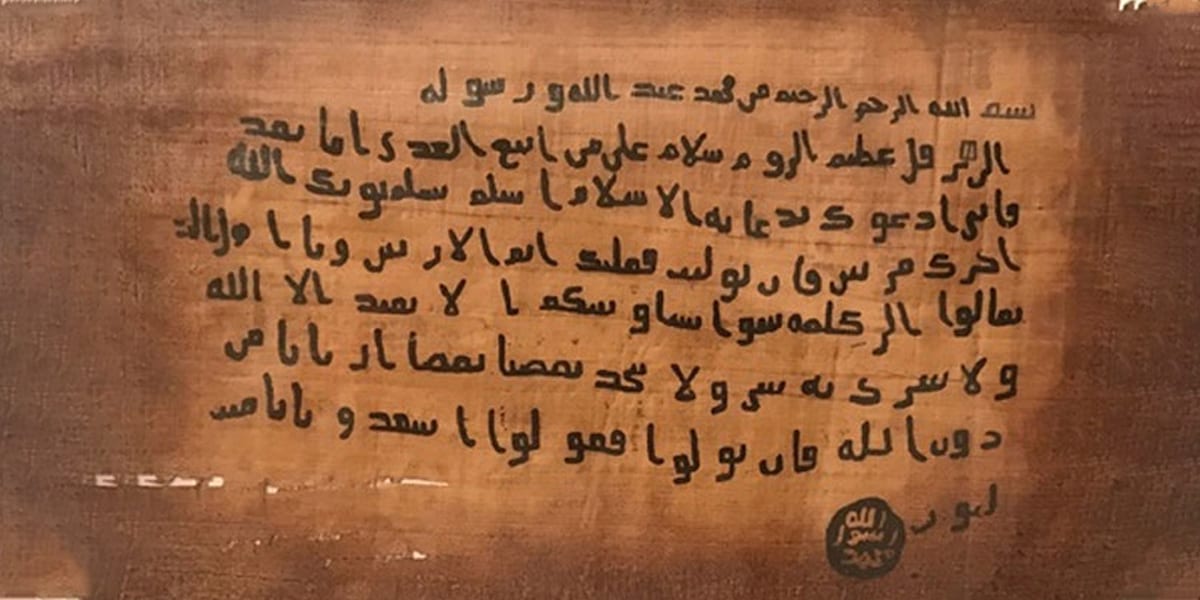 بسم الله الرحمن الرحيم من محمد عبد الله ورسوله
الى هرقل عظيم الروم سلام على من اتبع الهدى اما بعد
فانى ادعوك بدعايه الاسلام اسلم تسلم يوتك الله
اجرك مرتين فان توليت فعليك اثم الاريسين ويا اهل
تعالوا الى كلمه سوا بيننا وبينكم ا لا نعبد الا الله
ولا نشرك به شى ولا يتخذ بعضنا بعضا اربابا من
دون الله فان تولوا فقولوا اشهدوا بانا مسـ
لمون
الله
رسول
محمد